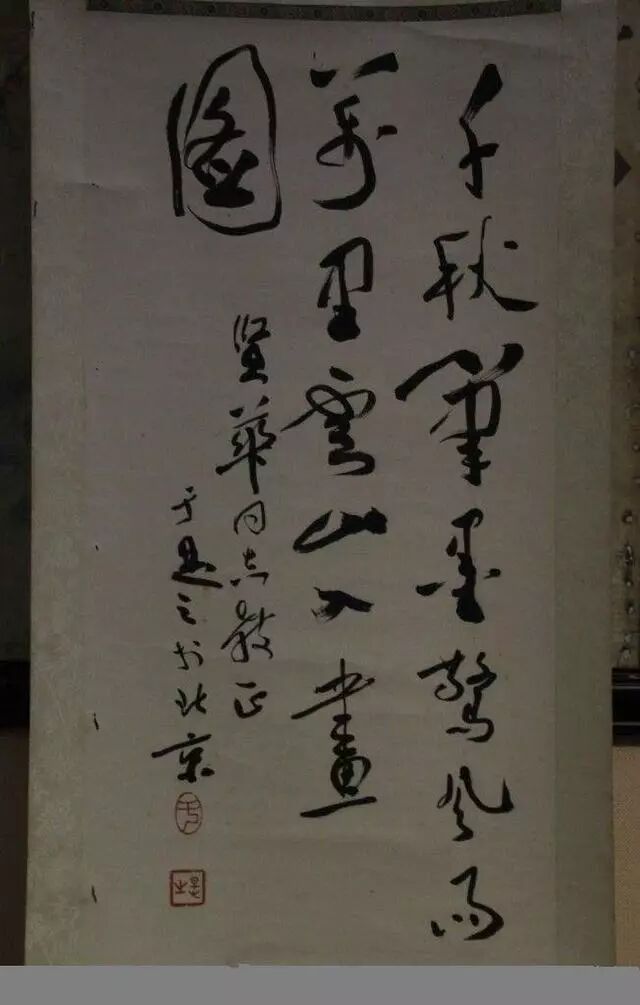 千秋筆墨驚風雨
萬里雲山入畫
圖
賢華同志教正
于是之於北京